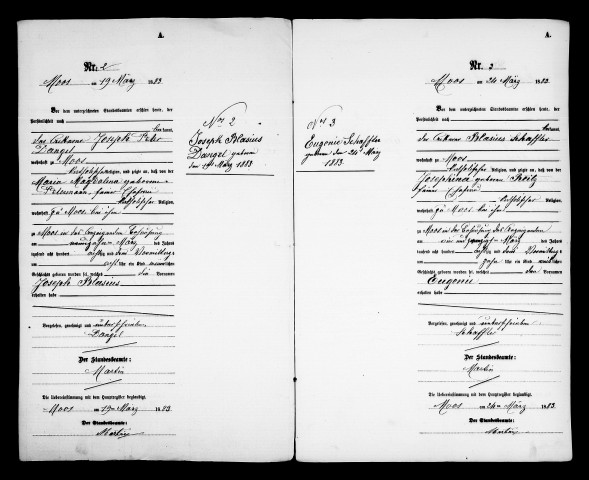 A.
Nr. 2
Moos am 19 März 1883.
Vor dem unterzeichneten Standesbeamten erschien heute, der
Persönlichkeit nach
bekannt,
der Ackerer Joseph Peter
Dangel
wohnhaft zu Moos
katholischer Religion, und zeigte an, daß von der
Maria Magdalena geborene
seiner Ehefrau
katholischer Religion,
wohnhaft zu Moos bei ihm
zu Moos in der Behausung des Anzeigenden
am neunzehnten März des Jahres
tausend acht hundert achtzig und drei Vormittags
um acht Uhr ein Kind männlichen
Geschlechts geboren worden sei, welches die Vornamen
Joseph Blasius
erhalten habe
Vorgelesen, genehmigt und unterschrieben
Dangel
Der Standesbeamte:
Martin
Die Uebereinstimmung mit dem Hauptregister beglaubigt.
Moos am 19 März 1883.
Der Standesbeamte:
Martin
No 2
Joseph Blasius
Dangel geboren
den 19 März 1883.
No 3
Eugenie Schaffler
geboren den 24 März
1883.
A.
Nr. 3
Moos am 24 März 1883.
Vor dem unterzeichneten Standesbeamten erschien heute, der
Persönlichkeit nach
bekannt,
der Ackerer Blasius Schaffler
wohnhaft zu Moos
katholischer Religion, und zeigte an, daß von der
Josephina geborene
seiner Ehefrau
katholischer Religion,
wohnhaft zu Moos bei ihm
zu Moos in der Behausung des Anzeigenden
am März des Jahres
tausend acht hundert achtzig und drei Vormittags
um zehn Uhr ein Kind weiblichen
Geschlechts geboren worden sei, welches den Vornamen
Eugenie
erhalten habe
Vorgelesen, genehmigt und unterschrieben
Schaffler
Der Standesbeamte:
Martin
Die Uebereinstimmung mit dem Hauptregister beglaubigt.
Moos am 24 März 1883.
Der Standesbeamte:
Martin